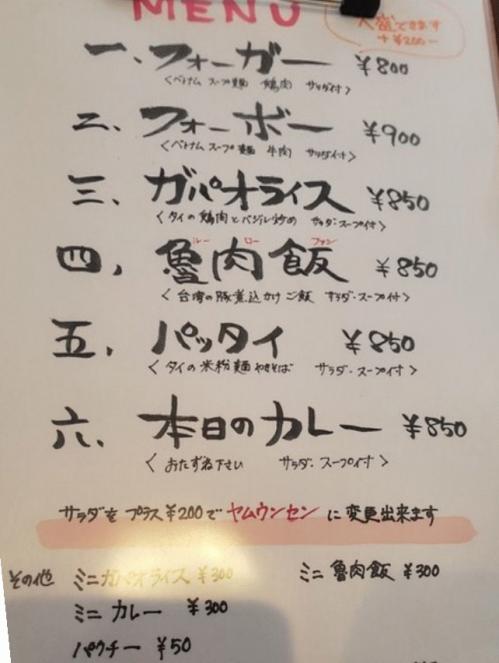 MENU
大盛できます
+¥200-
一、フォーガー ¥800
<ベトナム スープ麺 鶏肉 サラダ付>
二、フォーボー ¥900
<ベトナム スープ麺 牛肉 サラダ付>
三、ガパオライス ¥850
<タイの鶏肉とバジル炒め サラダ・スープ付>
ルー ロー ファン
四、魯肉飯 ¥850
<台湾の豚煮込かけご飯 サラダ・スープ付>
五、パッタイ ¥850
<タイの米粉麺やきそば サラダ・スープ付>
六、本日のカレー ¥850
<おたずね下さい サラダ・スープ付>
サラダをプラス¥200でヤムウンセンに変更出来ます
その他 ミニガパオライス ¥300 ミニ魯肉飯 ¥300
ミニカレー ¥300
パクチー ¥50